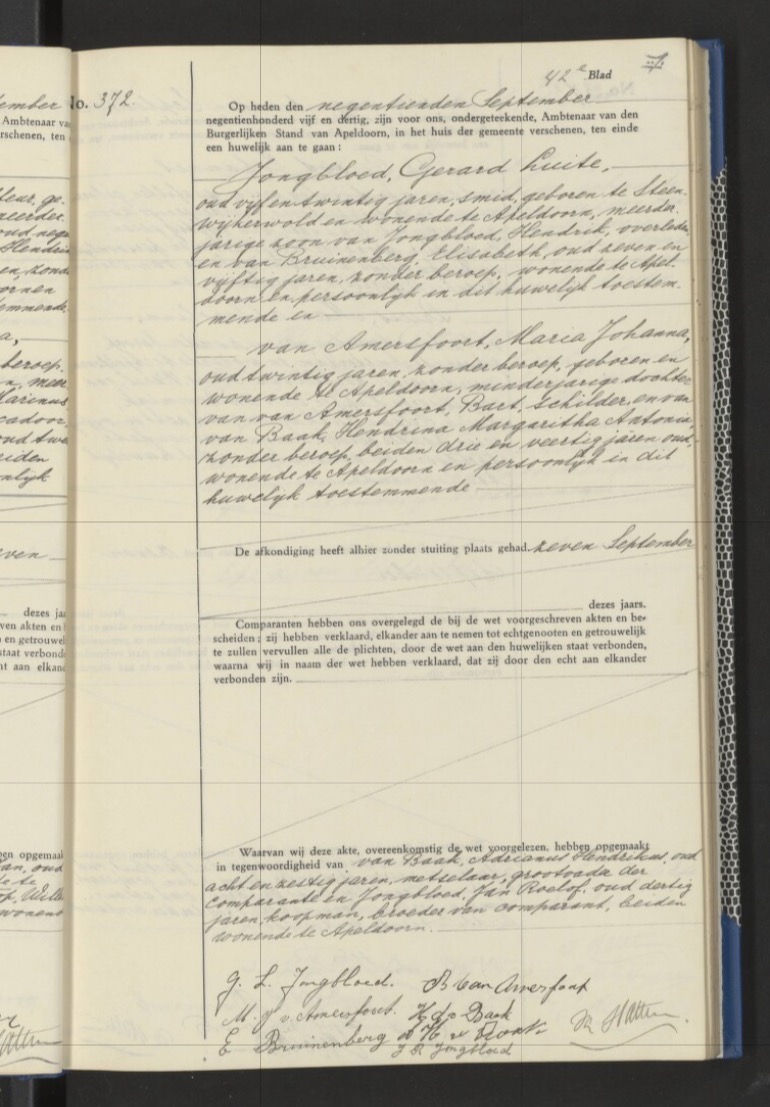 42e Blad
No. 372.
Op heden den negentienden September
negentienhonderd vijf en dertig, zijn voor ons, ondergeteekende, Ambtenaar van den
Burgerlijken Stand van Apeldoorn, in het huis der gemeente verschenen, ten einde
een huwelijk aan te gaan :
Jongbloed, Gerard Luite,
oud vijf en twintig jaren, smid, geboren te Steen-
wijkerwold en wonende te Apeldoorn, meerder-
jarige zoon van Jongbloed, Hendrik, overleden
en van Bruinenberg, Elisabeth, oud zeven en
vijftig jaren, zonder beroep, wonende te Apel-
doorn en persoonlijk in dit huwelijk toestem-
mende en
van Amersfoort, Maria Johanna,
oud twintig jaren, zonder beroep, geboren en
wonende te Apeldoorn, minderjarige dochter
van van Amersfoort, Bart, schilder, en van
van Baak, Hendrina Margaritha Antonia,
zonder beroep, beiden drie en veertig jaren oud,
wonende te Apeldoorn en persoonlijk in dit
huwelijk toestemmende
De afkondiging heeft alhier zonder stuiting plaats gehad zeven September
dezes jaars.
Comparanten hebben ons overgelegd de bij de wet voorgeschreven akten en be-
scheiden ; zij hebben verklaard, elkander aan te nemen tot echtgenooten en getrouwelijk
te zullen vervullen alle de plichten, door de wet aan den huwelijken staat verbonden,
waarna wij in naam der wet hebben verklaard, dat zij door den echt aan elkander
verbonden zijn.
Waarvan wij deze akte, overeenkomstig de wet voorgelezen, hebben opgemaakt
in tegenwoordigheid van van Baak, Adrianus Hendrikus, oud
acht en zestig jaren, metselaar, grootvader der
comparante en Jongbloed, Jan Roelof, oud dertig
jaren, koopman, broeder van comparant, beiden
wonende te Apeldoorn.
G. L. Jongbloed. B van Amersfoort
M. J. v. Amersfoort. H v Baak
E Bruinenberg A H v Baak
J R Jongbloed